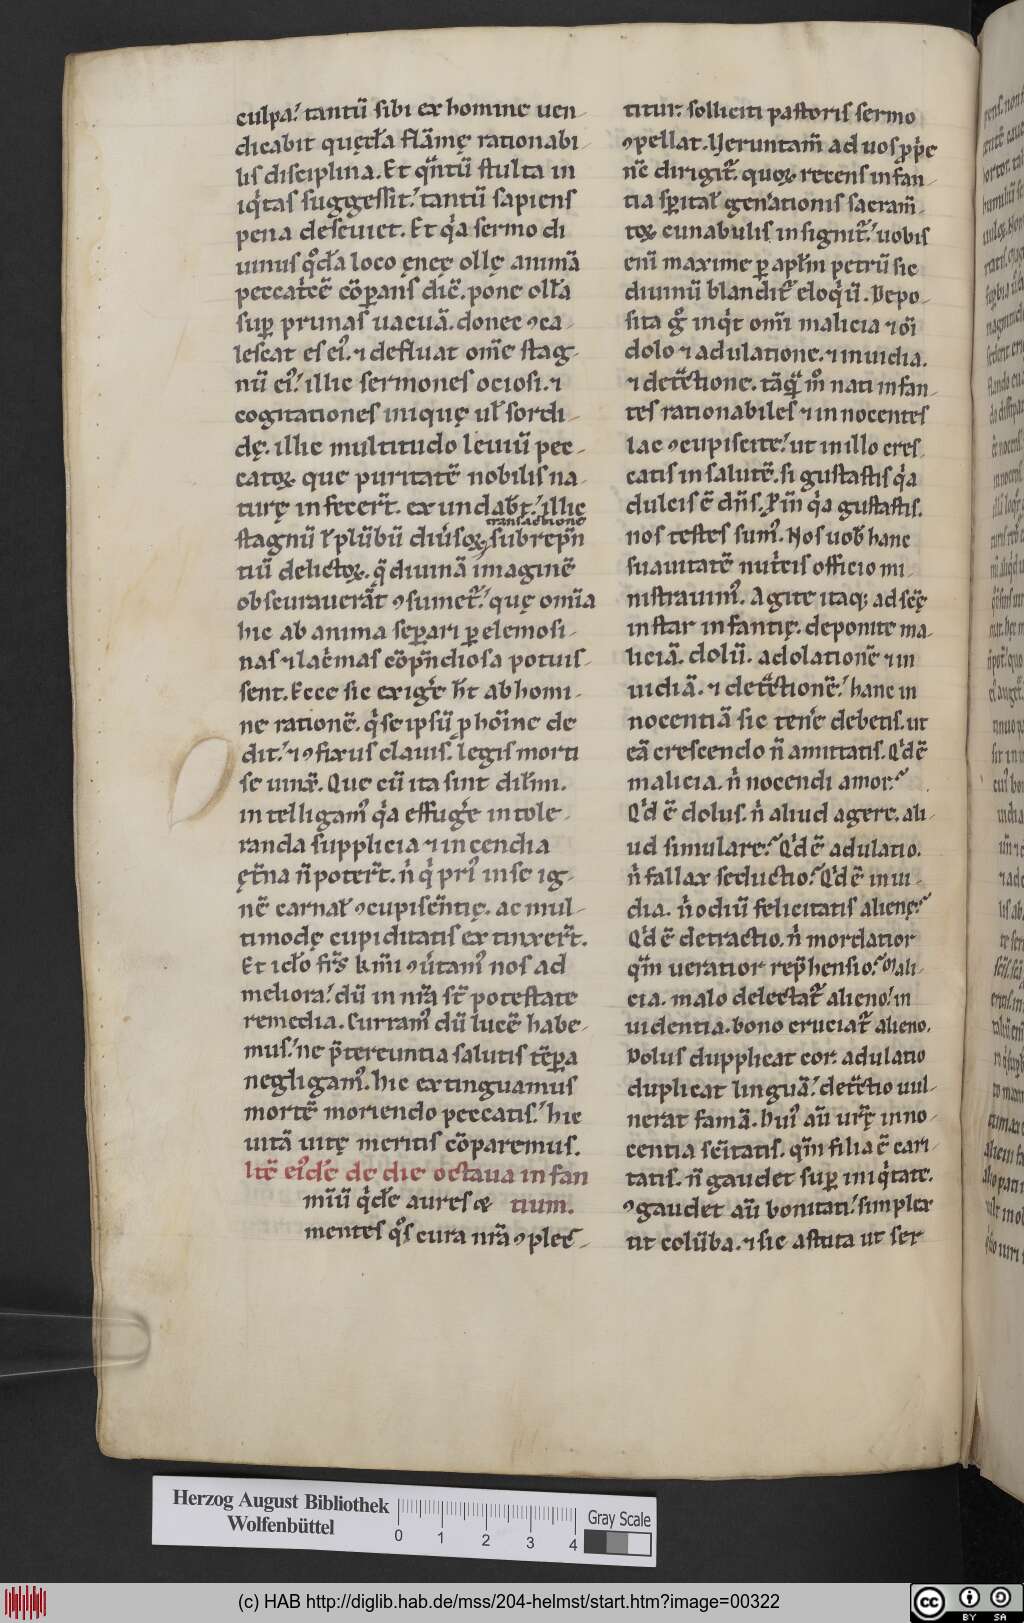 culpa. tantũ sibi ex homine uen-
dicabit quęda̅ flãmę rationabi
lis disciplina. Et q̃ntũ stulta in
iq̇tas suggessit. tantũ sapiens
pena deseuiet. Et q̇a sermo di
uinus loco ęneę ollę animã
peccat̾cẽ cõparans diċ. pone olla̅
sup̲ prunas uacuã. donec ꝯca-
lescat es ei᾽. ⁊ defluat om̃e stag-
nũ ei᾽. illic sermones ociosi. ⁊
cogitationes iniquę ul̅ sordi-
dę. illic multitudo leuiũ pec-
catoꝝ que puritatẽ nobilis na-
turę infecer̃t. exundab̅t. illic
transactione
stagnũ l̅ plũbũ diũsoꝝ subrep̃n
tiũ delictoꝝ. q̃ diuinã imaginẽ
obscurauerãt ꝯsumet̃. quę om̃ia
hic ab anima sep̲ari p̲ elemosi-
nas ⁊ lac̾mas cõp̃ndiosa potuis-
sent. Ecce sic exig̾e h̅t ab homi-
ne rationẽ. q̇ se ipsũ ꝓ hõine de
dit. ⁊ ꝯfixus clauis. legis morti
se uinx̃. Que cũ ita sint dil̅mi.
intelligam᾽ q̇a effug̾e intole-
randa supplicia ⁊ incendia
ęt̅na ñ poter̃t. ṅ q̇ pri᾽ in se ig-
nẽ carnal̅ ꝯcupiscẽntię. ac mul-
timodę cupiditatis extinxer̃t.
Et ido̅ fr̅s k̅mi ꝯu̾tam᾽ nos ad
meliora. dũ in nr̃a st̅ potestate
remedia. Curram᾽ dũ lucẽ habe-
mus. ne p̃tereuntia salutis tẽp̲a
negligam᾽. hic extinguamus
mortẽ moriendo peccatis. hic
uitã uitę meritis cõparemus.
Itẽ ei᾽dẽ de die octaua infan
tium.
mĩũ q̇de̅ aures ⁊
mentes q᾽s cura nr̃a ꝯplec̅-
titur. solliciti pastoris sermo
ꝯpellat. Ueruntam̃ ad uos ꝓp̾e
nẽ dirigit̃. quoꝝ recens infan-
tia sp̅ital̅ gen̾ationis sacram̃-
toꝝ cunabulis insignit̃. uobis
enĩ maxime p̲ apl̅m petrũ sic
diuinũ blandit̃ eloq̇ũ. Depo-
sita g᾽ inq̇t om̃i malicia ⁊ oĩ
dolo ⁊ adulatione. ⁊ inuidia.
⁊ detc̃tione. tãq̃ m᾽ nati infan-
tes rationabiles ⁊ innocentes
lac ꝯcupiscite. ut in illo cres-
catis in salutẽ. si gustastis q̇a
dulcis ẽ dñs. P̲m̃ q̇a gustastis.
nos testes sum᾽. Nos uob̅ hanc
suauitatẽ nut̾cis officio mi-
nistrauim᾽. Agite itaq; ad sc̅ę
instar infantię. deponite ma-
liciã. dolũ. adolationẽ ⁊ in
uidiã. ⁊ detc̃tionẽ. hanc in
nocentiã sic ten̾e debetis. ut
eã crescendo ñ amittatis. Q̇d ẽ
malicia. ṅ nocendi amor.
Q̇d ẽ dolus. ṅ aliud agere. ali-
ud simulare. Q̇d ẽ adulatio.
ṅ fallax seductio. Q̇d ẽ inui-
dia. ṅ odiũ felicitatis alienę.
Q̇d ẽ detractio. ṅ mordatior
qm̃ ueratior rep̃hensio. Mali-
cia. malo delectat̃ alieno. in
uidentia. bono cruciat̃ alieno.
Dolus dupplicat cor. adulatio
duplicat linguã. detc̃tio uul-
nerat famã. Hui᾽ aũ ur̃ę inno-
centia sc̅itatis. qm̃ filia ẽ cari-
tatis. ñ gaudet sup̲ iniq̇tate.
ꝯgaudet aũ bonitati. simplex
sit colũba. ⁊ sic astuta ut ser
Herzog August Bibliothek
Wolfenbüttel
0 1 2 3 4
Gray Scale
(c) HAB http://diglib.hab.de/mss/204-helmst/start.htm?image=00322
cc BY SA